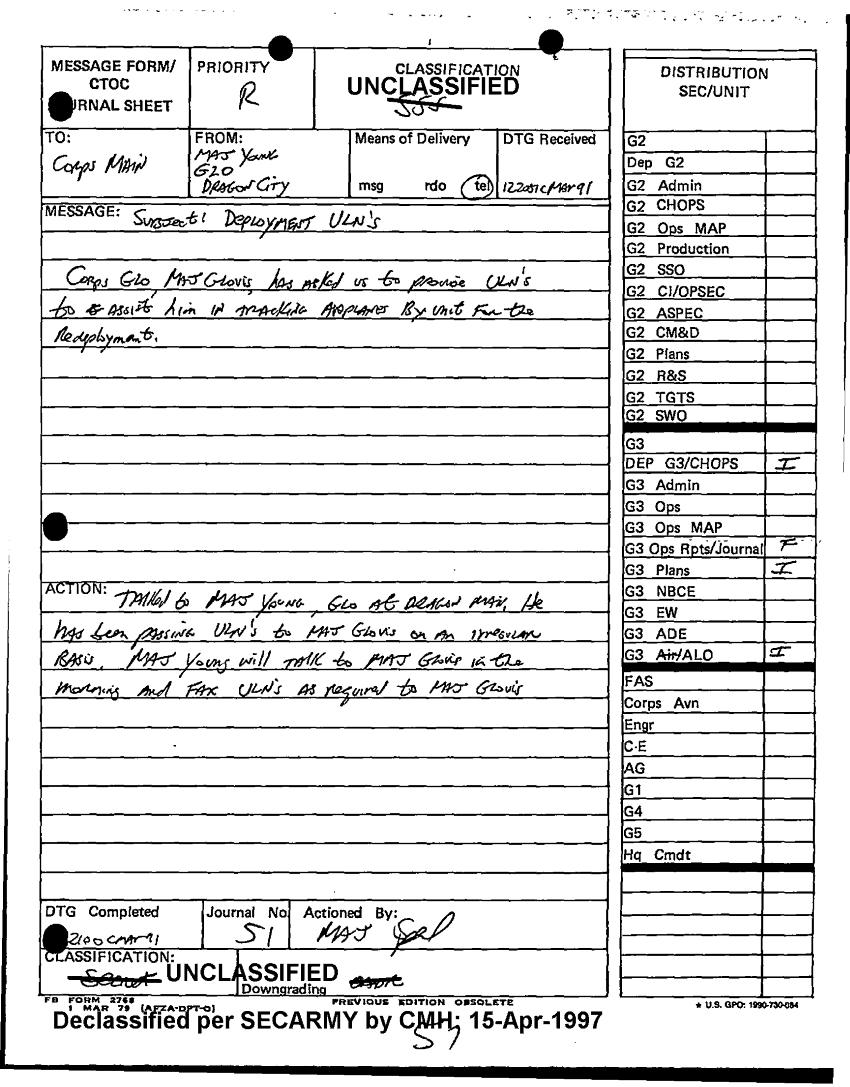 MESSAGE FORM/
CTOC
RNAL SHEET
PRIORITY
R
CLASSIFICATION
UNCLASSIFIED
TO:
Corps MAIN
FROM:
MAJ Young
GLO
DRAGON CITY
Means of Delivery
msg rdo tel
DTG Received
122051CMAR91
MESSAGE: Subject: Deployment ULN's
Corps GLO, MAJ Glovis, has asked us to provide ULN's
to assist him in tracking Airplanes By unit For the
Redeployment.
ACTION: Talked to MAJ Young, GLO at DRAGON MAIN. He
has been passing ULN's to MAJ Glovis on an irregular
Basis. MAJ Young will talk to MAJ Glovis in the
morning and FAX ULN's as required to MAJ Glovis
DTG Completed
2100CMAR91
Journal No
51
Actioned By:
MAJ
CLASSIFICATION:
Secret UNCLASSIFIED
Downgrading
FB FORM 2768
1 MAR 79 (AFZA-DPT-O)
PREVIOUS EDITION OBSOLETE
Declassified per SECARMY by CMH; 15-Apr-1997
51
DISTRIBUTION
SEC/UNIT
G2
Dep G2
G2 Admin
G2 CHOPS
G2 Ops MAP
G2 Production
G2 SSO
G2 CI/OPSEC
G2 ASPEC
G2 CM&D
G2 Plans
G2 R&S
G2 TGTS
G2 SWO
G3
DEP G3/CHOPS I
G3 Admin
G3 Ops
G3 Ops MAP
G3 Ops Rpts/Journal F
G3 Plans I
G3 NBCE
G3 EW
G3 ADE
G3 Air/ALO I
FAS
Corps Avn
Engr
C-E
AG
G1
G4
G5
Hq Cmdt
* U.S. GPO: 1990-730-084